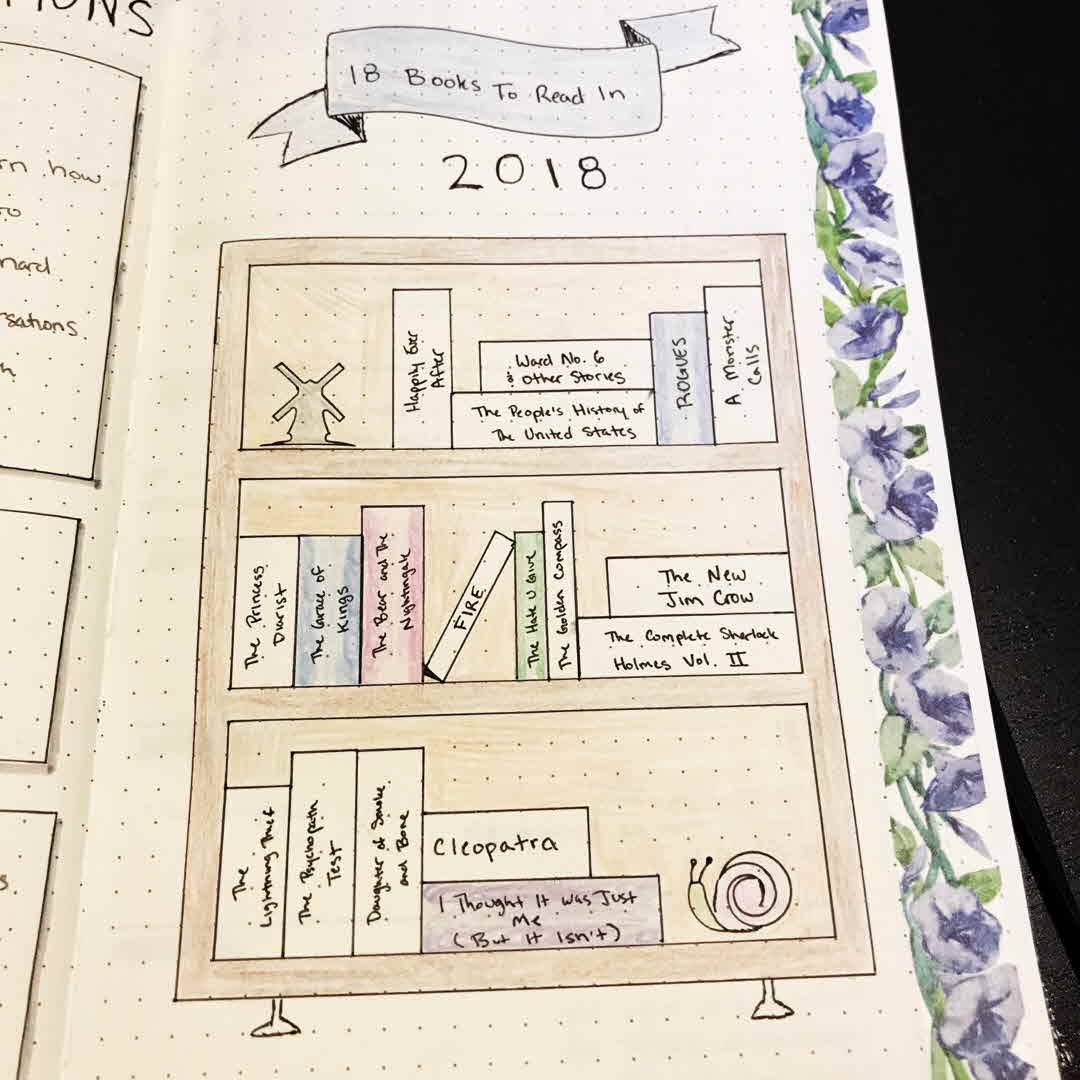 how
18 Books To Read In
2018
Happily Ever
After
Ward No. 6
& Other Stories
The People's History of
The United States
ROGUES
A Monster
Calls
The Princess
Diarist
The Grace of
Kings
The Bear and The
Nightingale
FIRE
The Hate U Give
The Golden Compass
The New
Jim Crow
The Complete Sherlock
Holmes Vol. II
The
Lightning Thief
The Psychopath
Test
Daughter of Smoke
and Bone
Cleopatra
I Thought It Was Just
Me
(But It Isn't)